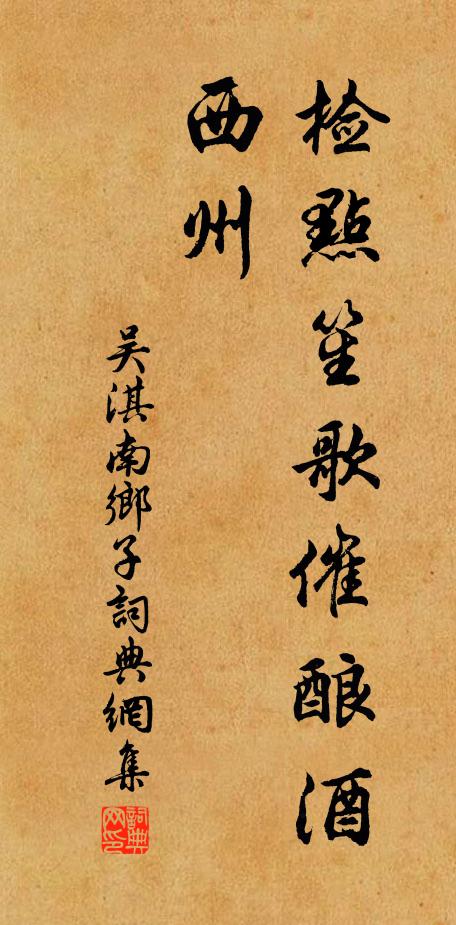 检點笙歌催酿酒
西州
吴淇南鄉子詞典網集
詞典
网印